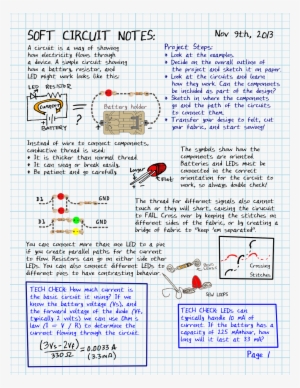 SOFT CIRCUIT NOTES:
Nov 9th, 2013
A circuit is a way of showing
how electricity flows through
a device. A simple circuit showing
how a battery, resistor, and
LED might work looks like this:
LED RESISTOR
Current
BATTERY
= ?
Battery holder
Project Steps:
• Look at the examples.
• Decide on the overall outline of
the project and sketch it on paper.
• Look at the circuits and learn
how they work. Can the components
be included as part of the design?
• Sketch in where the components
go and the path of the circuits
to connect them.
• Transfer your design to felt, cut
your fabric, and start sewing!
Instead of wire to connect components,
conductive thread is used:
• It is thicker than normal thread.
• It can snag or break easily.
• Be patient and go carefully
Longer
The symbols show how the
components are oriented
Batteries and LEDs must be
connected in the correct
orientation for the circuit to
work, so always double check!
D1 GND
D1 GND
The thread for different signals also cannot
touch or they will short, causing the circuit
to FAIL. Cross over by keeping the stitches on
different sides of the fabric, or by creating a
bridge of fabric to "keep 'em separated"
You can connect more than one LED to a pin
if you create parallel paths for the current
to flow. Resistors can go on either side other
LEDs. You can also connect different LEDs to
different pins to have contrasting behavior
Crossing
Stitches
SEW LOOPS
TECH CHECK: How much current is
the basic circuit is using? If we
know the battery voltage (Vs), and
the forward voltage of the diode (VF,
typically 2 volts) we can use Ohm's
law (I = V / R) to determine the
current flowing through the circuit.
(3Vs - 2VF) / 330 Ω = 0.0033 A
(3.3mA)
TECH CHECK LEDs can
typically handle 10 mA of
current. If the battery has a
capacity of 225 mAhour, how
long will it last at 33 mA?
Page 1